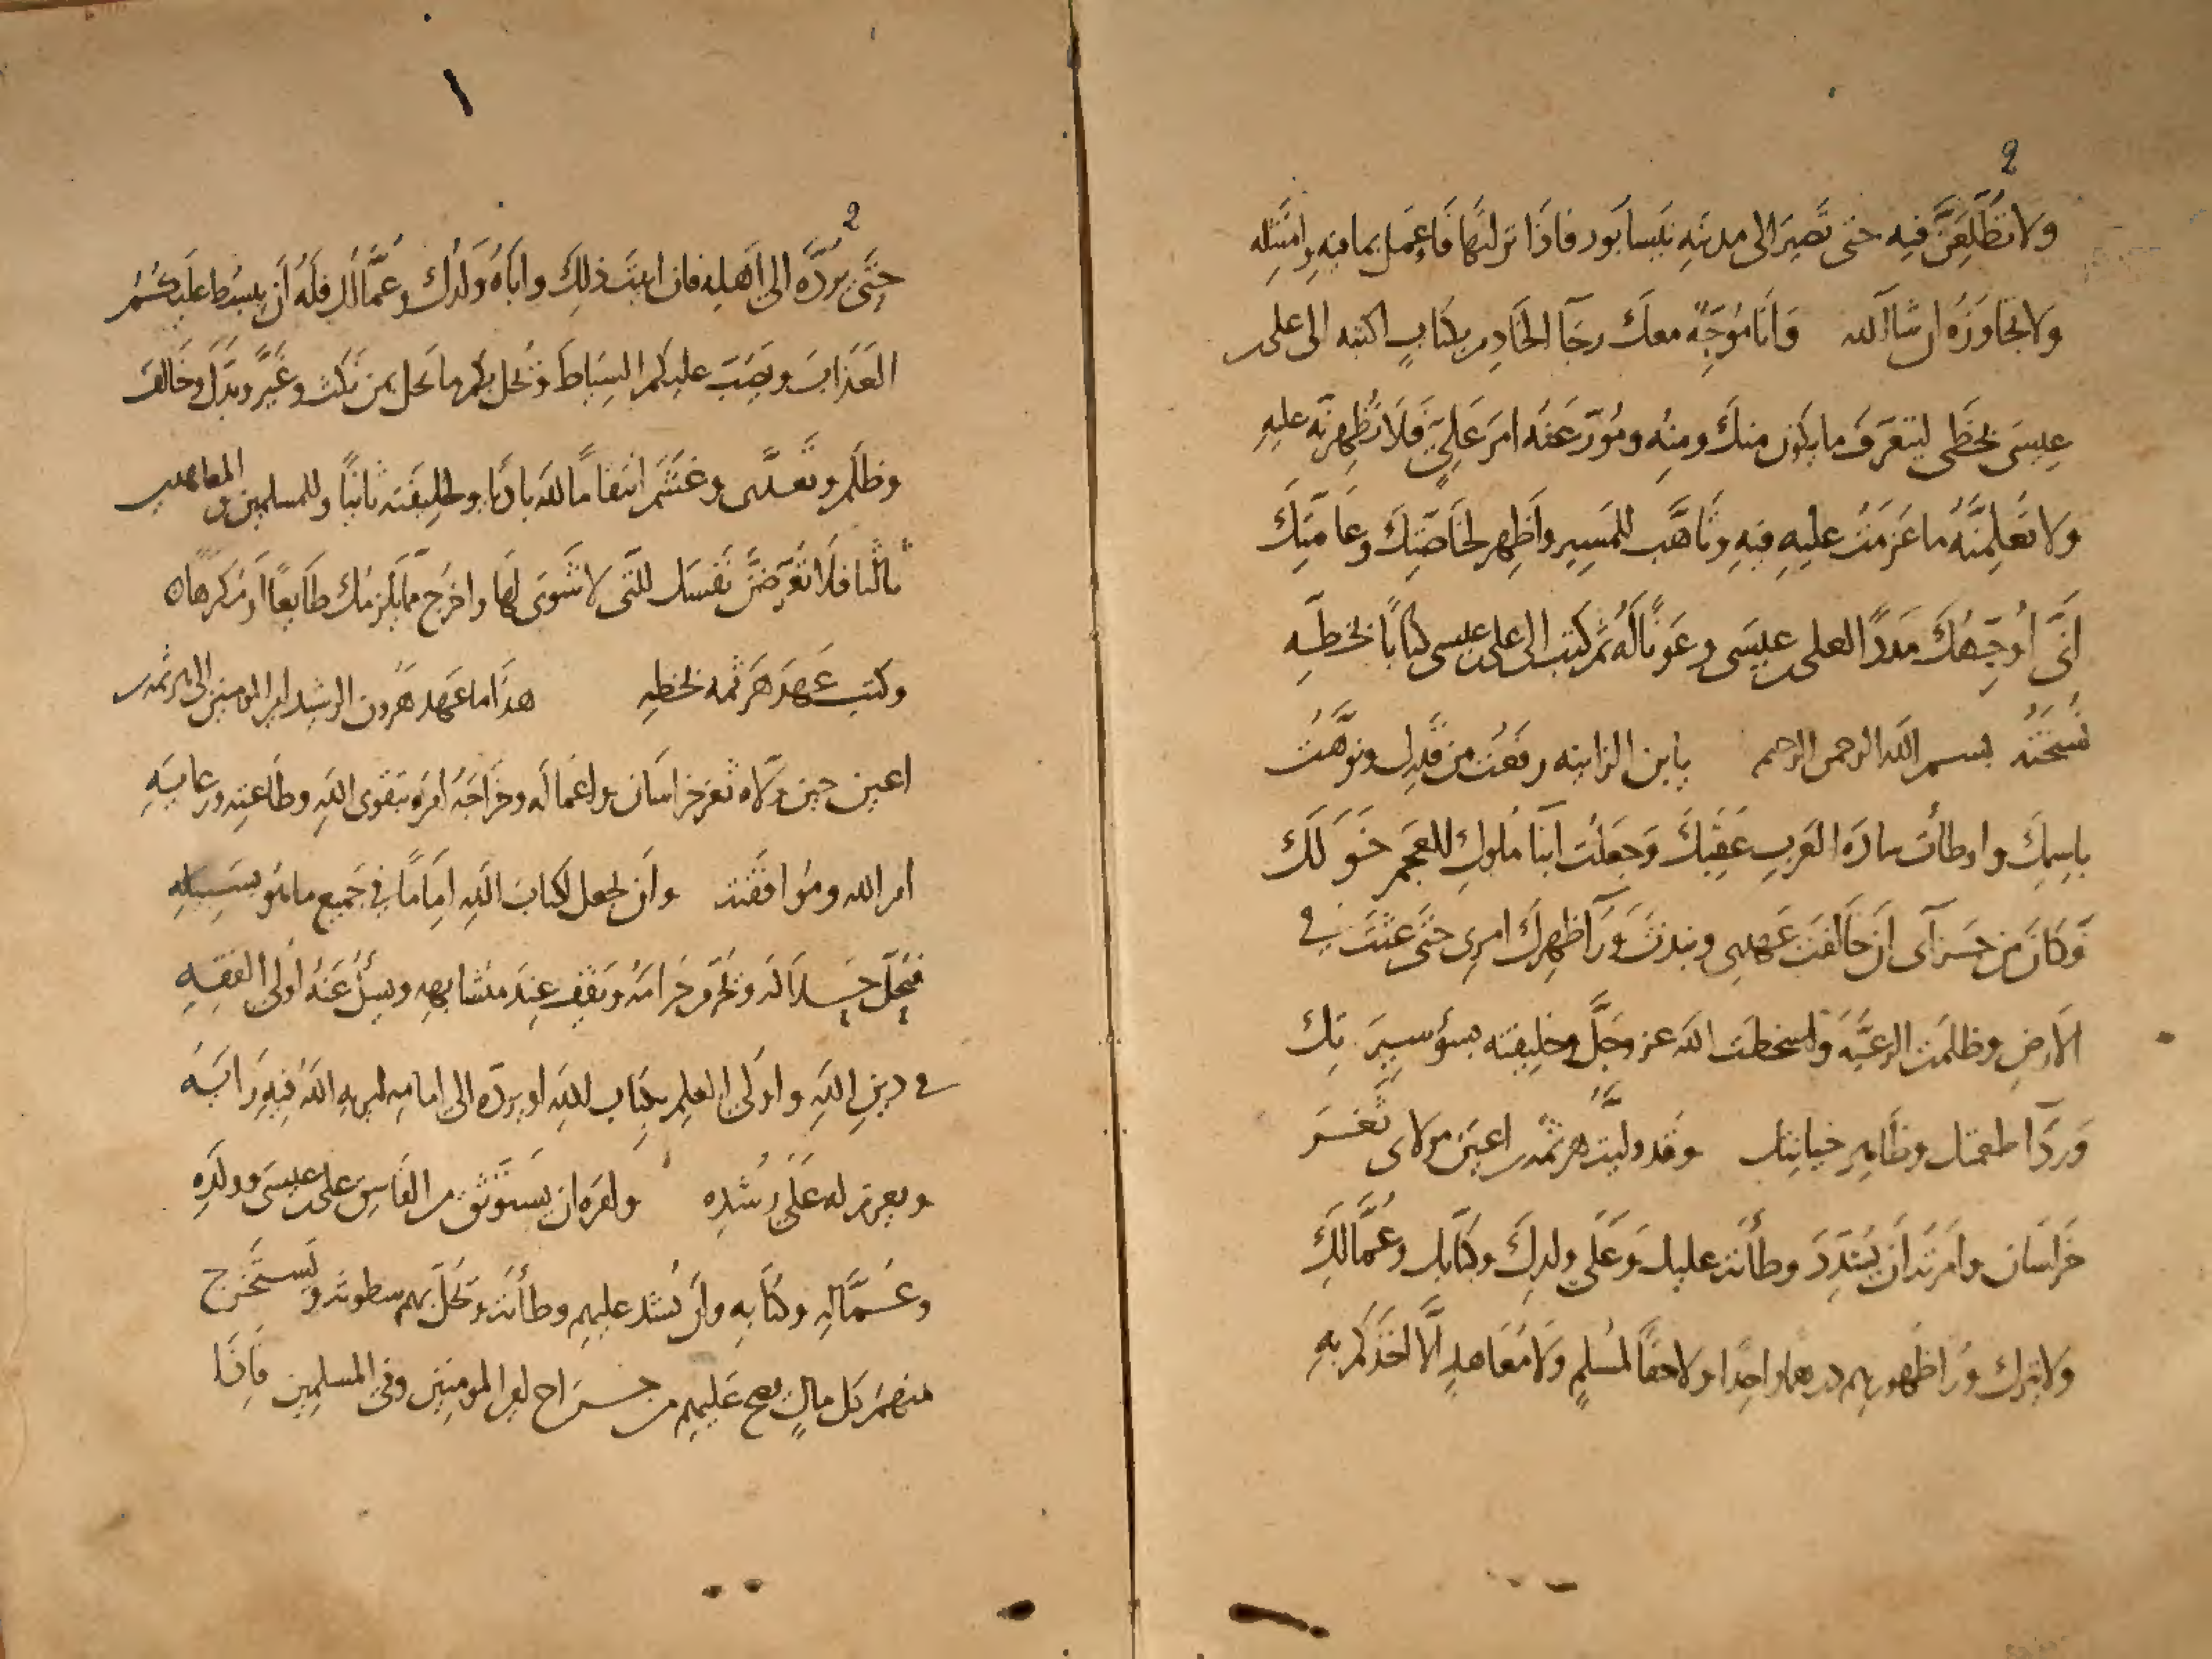 2
ولا تطلعن فيه حتى تصير الى مدينة نيسابور فاذا نزلتها فاعمل بما فيه وامتثله
ولا تجاوزه ان شا الله وانا موجه معك رجا الخادم بكتاب اكتبه الى على بن
عيسى بخطى ليتعرف ما يكون منك ومنه وهون عنه امر على فلا تظهرنه عليه
ولا تعلمنه ما عزمت عليه فيه وتاهب للمسير واظهر لخاصتك وعامتك
انى اوجهك مددا لعلى بن عيسى وعونا له ثم كتب الى على بن عيسى كتابا بخطه
نسخته بسم الله الرحمن الرحيم يابن الزانيه رفعت من قدرك ونوهت
باسمك واوطات سادة العرب عقبك وجعلت ابنا ملوك العجم خولك
وكان من جزآى ان خالفت عهدى ونبذت ورآ ظهرك امرى حتى عثت فى
الارض وظلمت الرعية واسخطت الله عز وجل وخليفته بسؤ سيرتك
وردآة طعمتك وظاهر خيانتك وقد وليت هرثمة بن اعين مولاى ثغر
خراسان وامرته ان يشدد وطأته عليك وعلى ولدك وكتابك وعمالك
ولا يترك ورا ظهوركم درهما واحدا ولا حقا لمسلم ولا معاهد الا اخذكم به
١
2
حتى يرده الى اهله فان ابيت ذلك واباه ولدك وعمالك فله ان يبسط عليكم
العذاب ويصب عليكم السياط ويحل بكم ما يحل بمن نكث وغير وبدل وخالف
وظلم وتعدى وغشم انتقاما لله باديا ولخليفته ثانيا وللمسلمين والمعاهدين
ثالثا فلا تعرضن نفسك للتى لا شوى لها واخرج مما يلزمك طايعا او مكرها ه
وكتب عهد هرثمه بخطه هذا ما عهد هرون الرشيد امير المومنين الى هرثمة بن
اعين حين ولاه ثغر خراسان واعماله وخراجه امره بتقوى الله وطاعته ورعاية
امر الله ومراقبته وان يجعل كتاب الله اماما فى جميع ما هو بسبيله
فيحل حلاله ويحرم حرامه ويقف عند متشابهه ويسل عنه اولى الفقه
فى دين الله واولى العلم بكتاب الله او يرده الى امامه ليريه الله فيه رايه
ويعزم له على رشده وامره ان يستوثق من الفاسق على بن عيسى وولده
وعماله وكتابه وان يشد عليهم وطأته ويحل بهم سطوته ويستخرج
منهم كل مال يصح عليهم من خراج امير المومنين وفى المسلمين فاذا